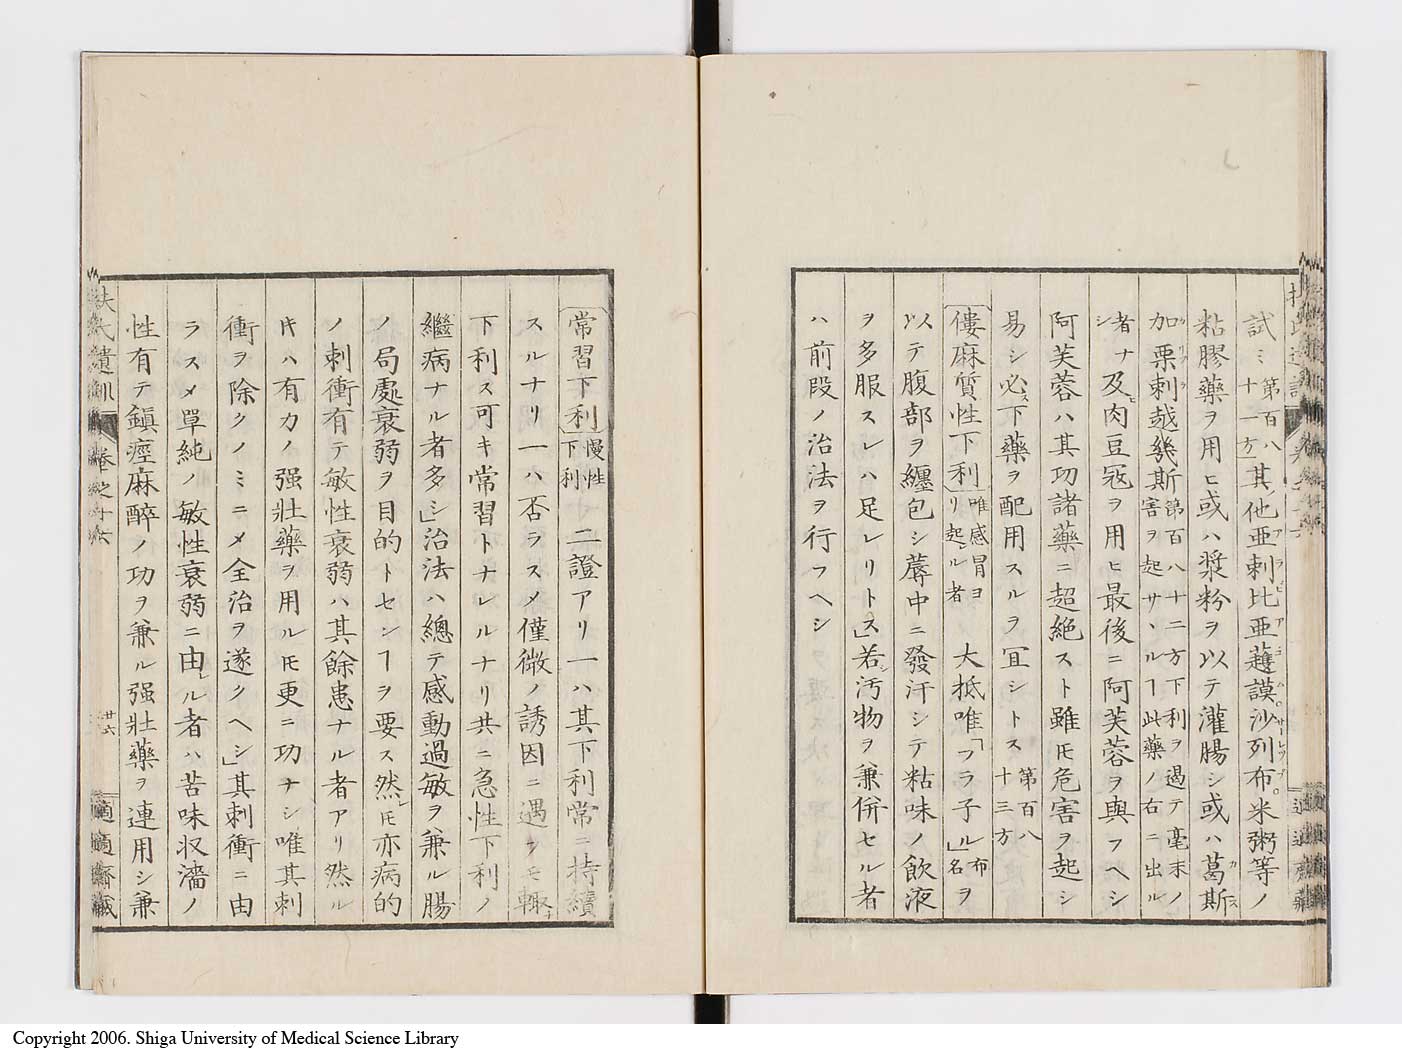 試ミ第百八十一方其他亜剌比亜護謨沙列布。米粥等ノ
粘膠藥ヲ用ヒ或ハ漿粉ヲ以テ灌腸シ或ハ葛斯
加栗剌越幾斯第百八十二方下利ヲ遏テ毫末ノ害ヲ起サヽルヿ此藥ノ右ニ出ル
者ナシ及ヒ肉豆寇ヲ用ヒ最後ニ阿芙蓉ヲ與フヘシ
阿芙蓉ハ其功諸藥ニ超絶スト雖モ危害ヲ起シ
易シ必ス下藥ヲ配用スルヲ冝シトス第百八十三方
僂麻質性下利唯感冒ヨリ起ル者 大抵唯「フラ子ル」布名ヲ
以テ腹部ヲ纏包シ蓐中ニ發汗シテ粘味ノ飲液
ヲ多服スレハ足レリトス」若シ汚物ヲ兼併セル者
ハ前段ノ治法ヲ行フヘシ
常習下利慢性下利 二證アリ一ハ其下利常ニ持續
スルナリ一ハ否ラスメ僅微ノ誘因ニ遇フモ輙チ
下利ス可キ常習トナレルナリ共ニ急性下利ノ
繼病ナル者多シ」治法ハ總テ感動過敏ヲ兼ル腸
ノ局處衰弱ヲ目的トセンヿヲ要ス然レモ亦病的
ノ刺衝有テ敏性衰弱ハ其餘患ナル者アリ然ル
キハ有力ノ强壯藥ヲ用ルモ更ニ功ナシ唯其刺
衝ヲ除クノミニメ全治ヲ遂クヘシ」其刺衝ニ由
ラスメ單純ノ敏性衰弱ニ由ル者ハ苦味収濇ノ
性有テ鎭痙麻醉ノ功ヲ兼ル强壯藥ヲ連用シ兼
扶氏遺訓 卷之十六
廿六
適適齋藏
Copyright 2006. Shiga University of Medical Science Library